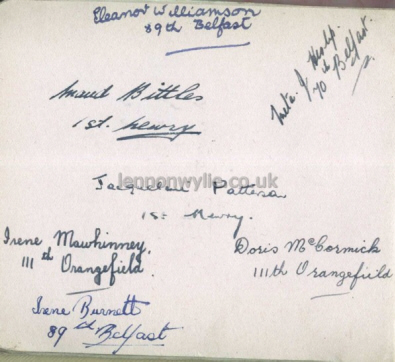 Eleanor Williamson
89th Belfast
Meta. J.
70th Belfast.
Maud Bittles
1st. Newry
lennonwylie.co.uk
Jacqueline
1st Newry.
Irene Mawhinney.
111th Orangefield.
Doris McCormick
111th Orangefield
Irene Burnett
89th Belfast